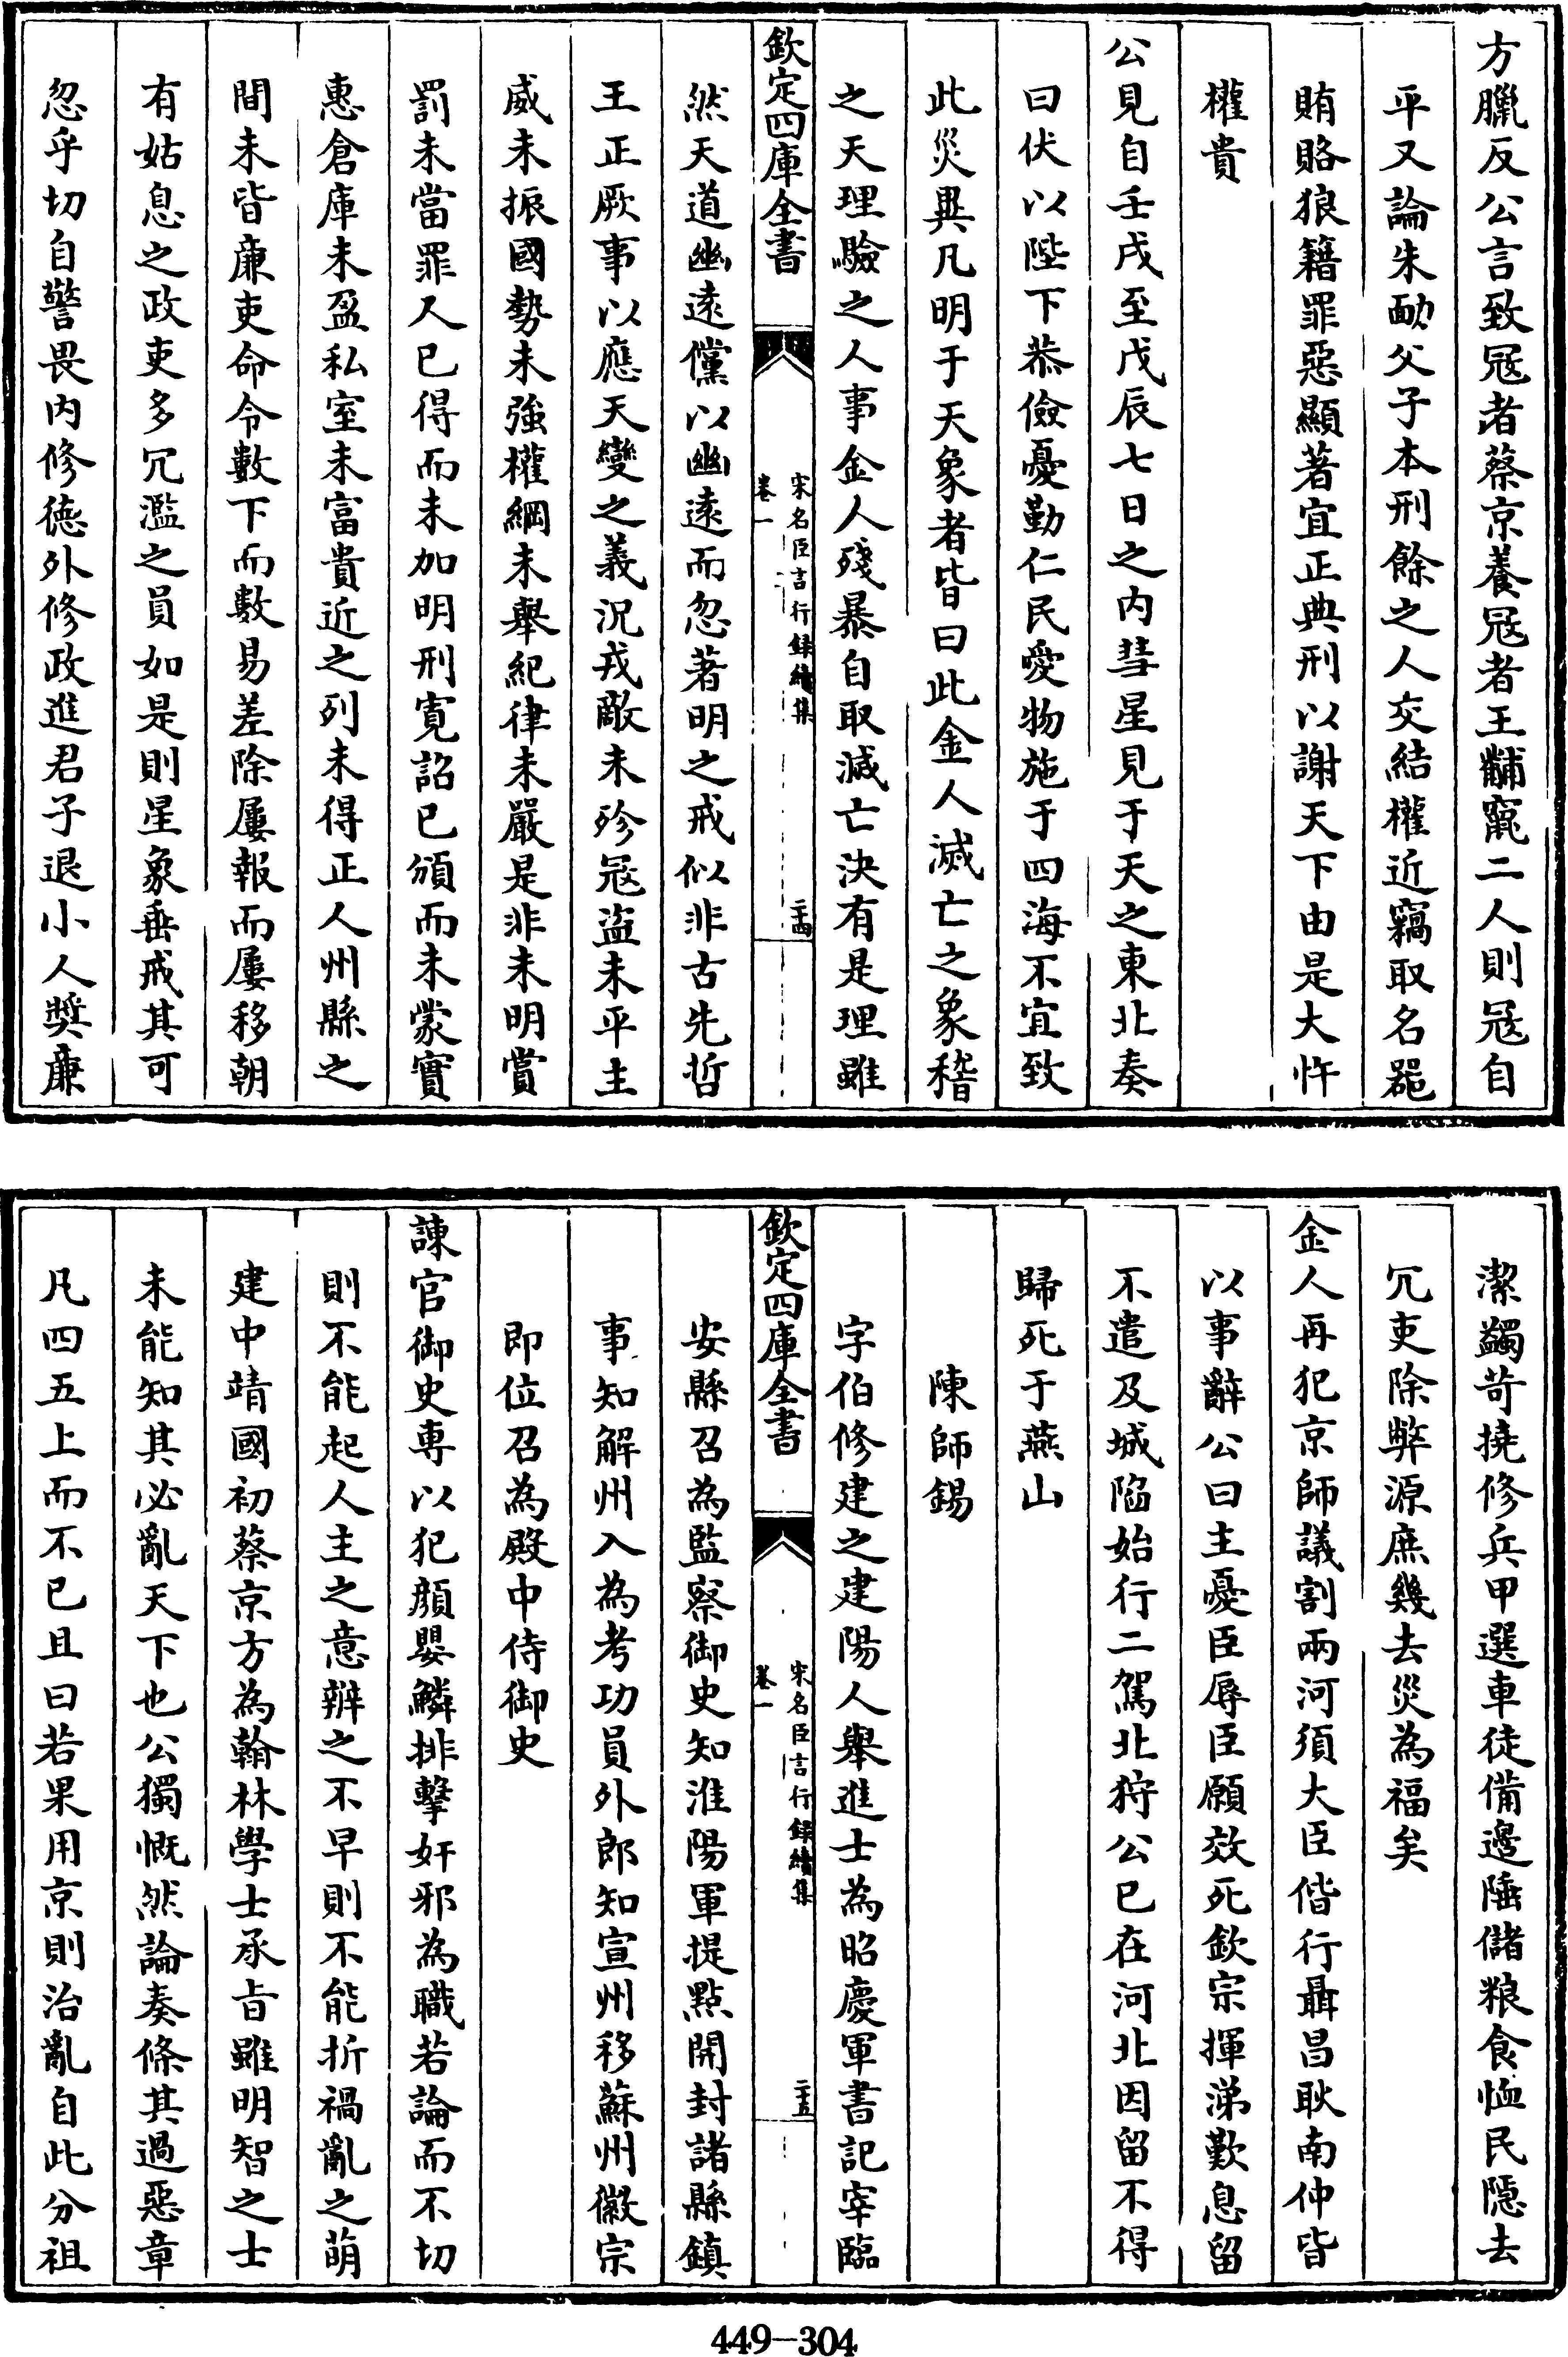 方臘反公言致冦者蔡京養冦者王黼竄二人則冦自
平又論朱勔父子本刑餘之人交結權近竊取名器
賄賂狼籍罪惡顯著宜正典刑以謝天下由是大忤
權貴
公見自壬戌至戊辰七日之内彗星見于天之東北奏
曰伏以陛下恭儉憂勤仁民愛物施于四海不宜致
此災異凡明于天象者皆曰此金人滅亡之象稽
之天理驗之人事金人殘暴自取滅亡決有是理雖
欽定四庫全書
宋名臣言行録續集
卷一
二十四
然天道幽逺儻以幽逺而忽著明之戒似非古先哲
王正厥事以應天變之義況戎敵未殄冦盗未平主
威未振國勢未強權綱未舉紀律未嚴是非未明賞
罰未當罪人已得而未加明刑寛詔已頒而未蒙實
惠倉庫未盈私室未富貴近之列未得正人州縣之
間未皆亷吏命令數下而數易差除屢報而屢移朝
有姑息之政吏多冗濫之員如是則星象垂戒其可
忽乎切自警畏内修徳外修政進君子退小人奬亷
潔蠲苛撓修兵甲選車徒備邊陲儲粮食恤民隠去
冗吏除弊源庶幾去災為福矣
金人再犯京師議割兩河須大臣偕行聶昌耿南仲皆
以事辭公曰主憂臣辱臣願效死欽宗揮涕歎息留
不遣及城陥始行二駕北狩公已在河北因留不得
歸死于燕山
陳師錫
字伯修建之建陽人舉進士為昭慶軍書記宰臨
欽定四庫全書
宋名臣言行録續集
卷一
二十五
安縣召為監察御史知淮陽軍提點開封諸縣鎮
事知解州入為考功員外郎知宣州移蘇州徽宗
即位召為殿中侍御史
諫官御史専以犯顔嬰鱗排擊奸邪為職若論而不切
則不能起人主之意辨之不早則不能折禍亂之萌
建中靖國初蔡京方為翰林學士承㫖雖明智之士
未能知其必亂天下也公獨慨然論奏條其過惡章
凡四五上而不已且曰若果用京則治亂自此分祖
449-304